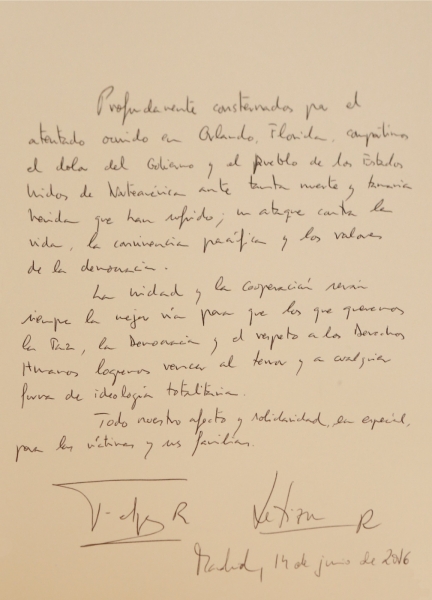 Profundamente consternados por el
atentado ocurrido en Orlando, Florida, compartimos
el dolor del Gobierno y el pueblo de los Estados
Unidos de Norteamérica ante tanta muerte y tamaña
herida que han sufrido; un ataque contra la
vida, la convivencia pacífica y los valores
de la democracia.
La unidad y la cooperación serán
siempre la mejor vía para que los que queremos
la Paz, la Democracia y el respeto a los Derechos
Humanos logremos vencer al terror y a cualquier
forma de ideología totalitaria.
Todo nuestro afecto y solidaridad, en especial,
para las víctimas y sus familias.
Felipe R Letizia R
Madrid, 14 de junio de 2016